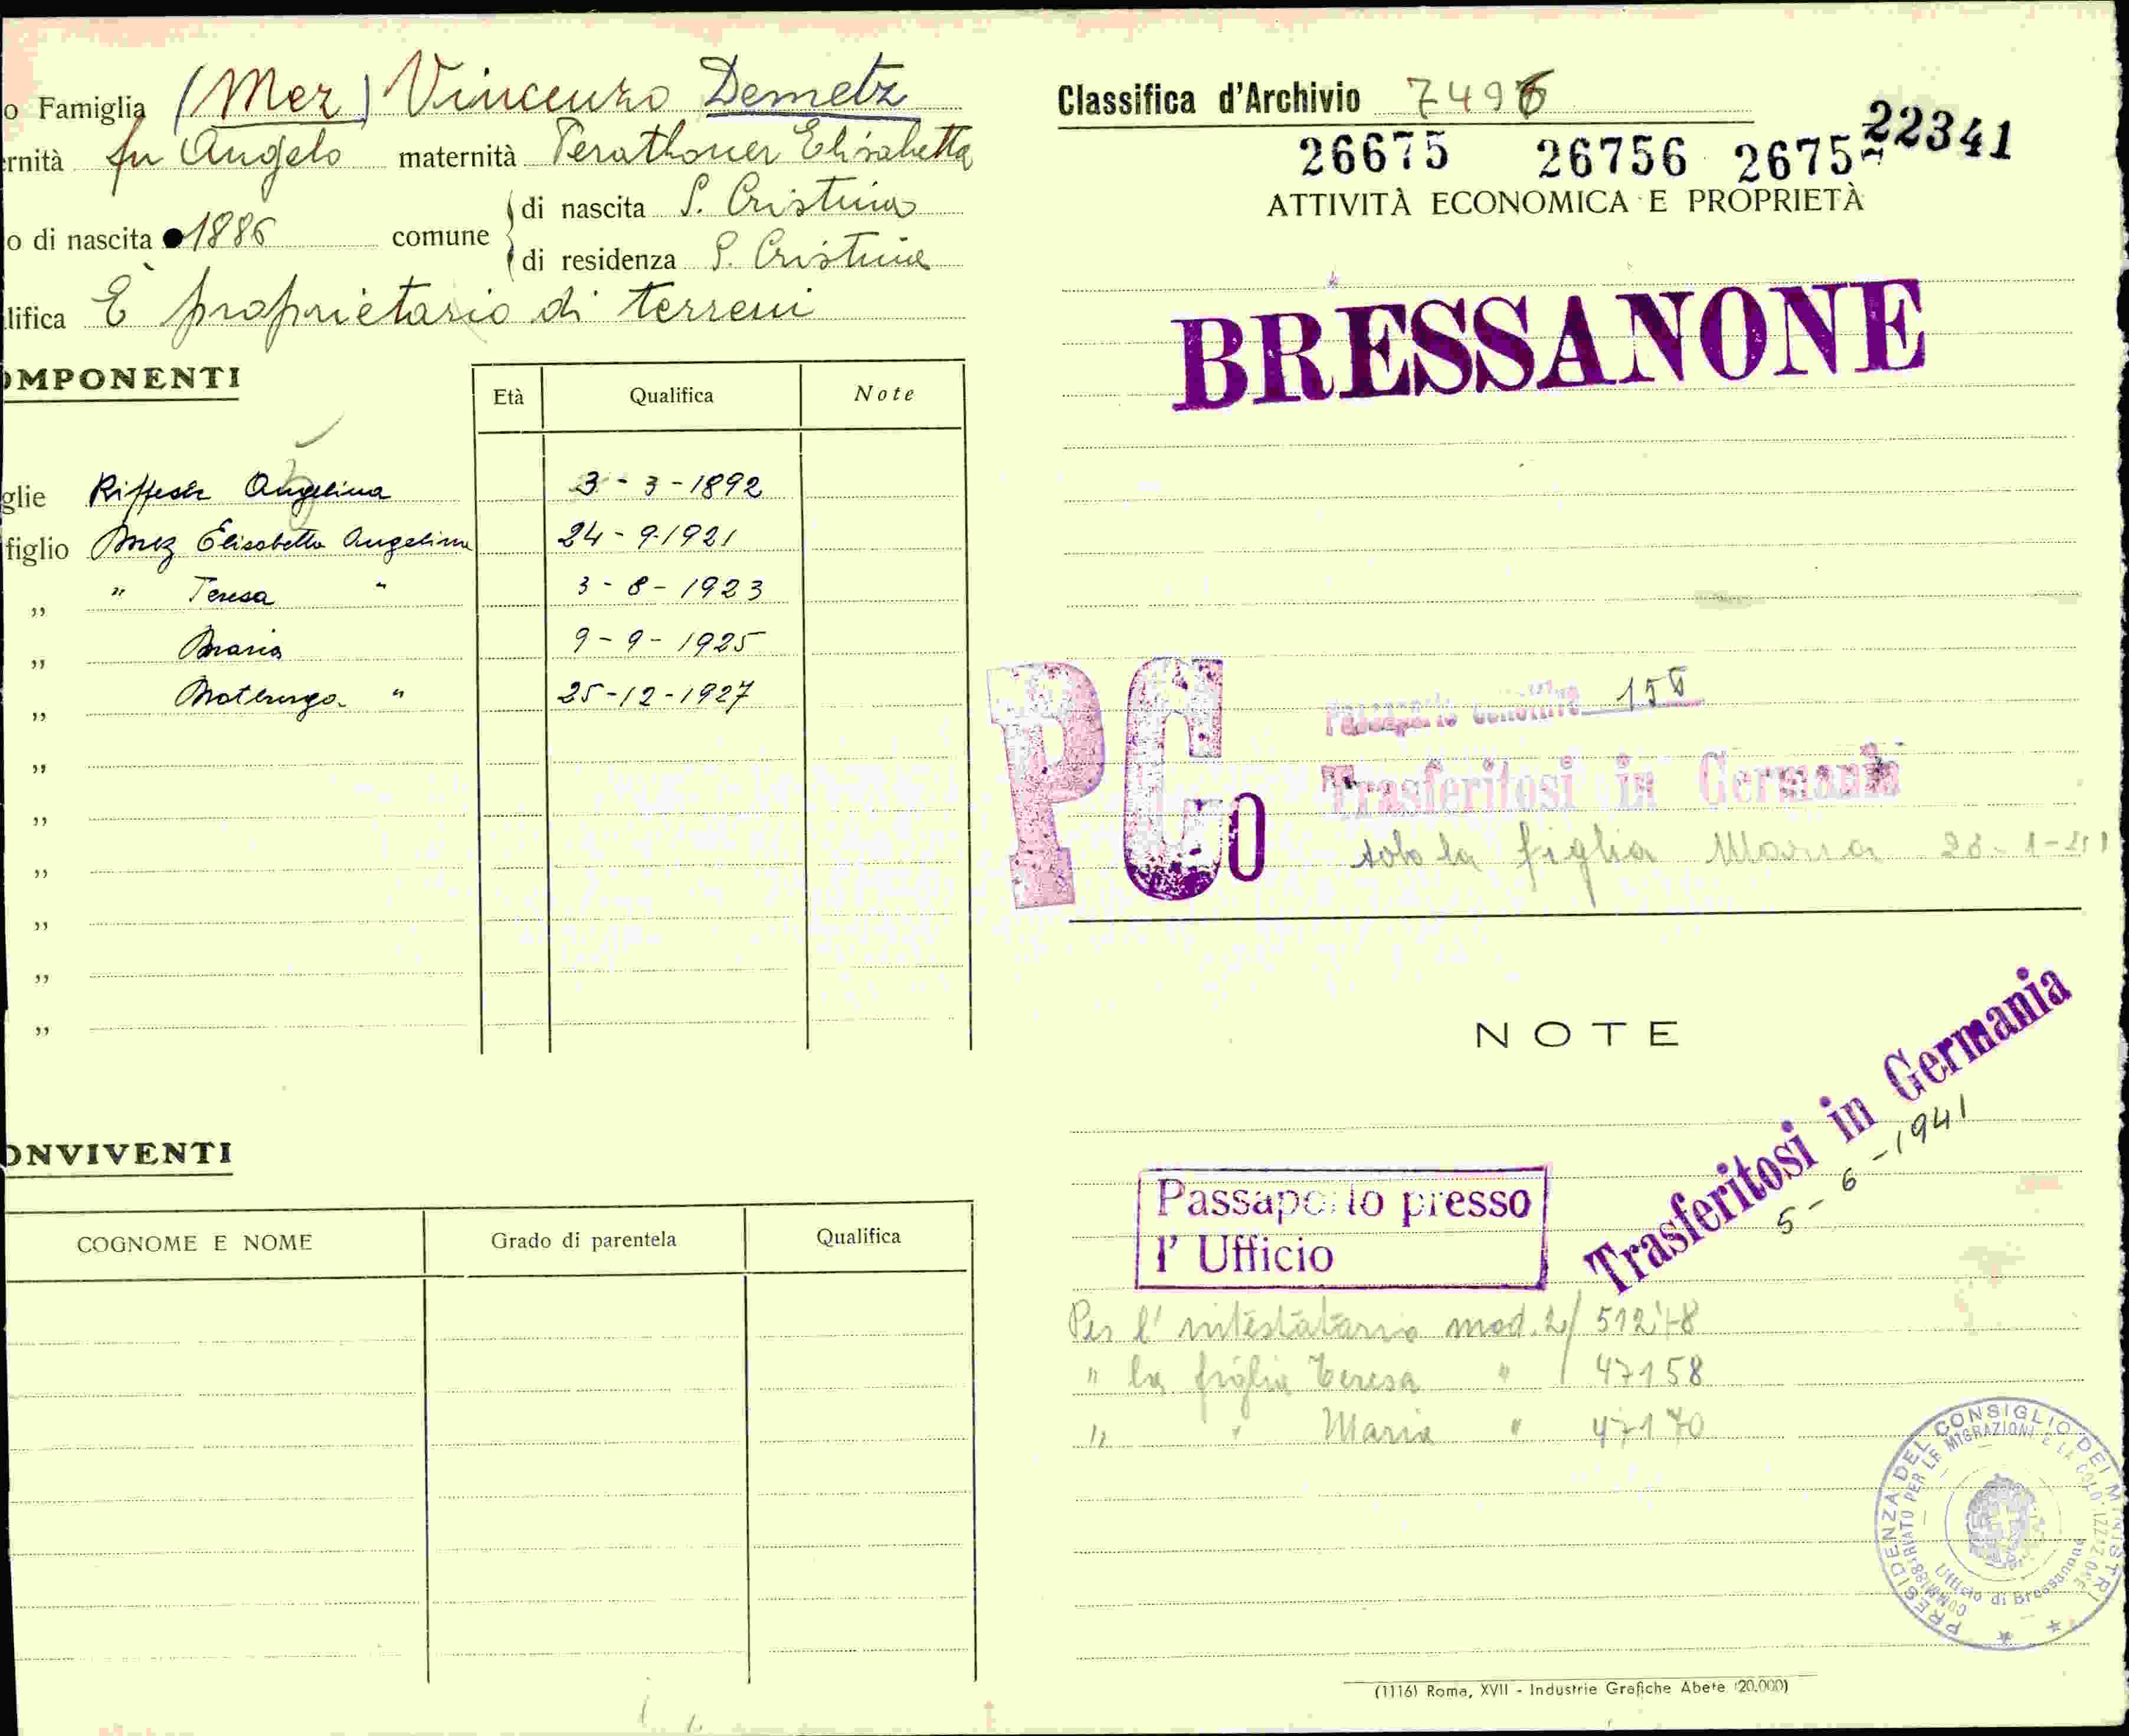 o Famiglia (Mez) Vincenzo Demetz
rnità fu Angelo maternità Perathoner Elisabetta
o di nascita 1886 comune di nascita S. Cristina
di residenza S. Cristina
lifica È proprietario di terreni
OMPONENTI
Età Qualifica Note
glie Angelina 3-3-1892
figlio Mez Elisabetta Angelina 24-9-1921
„ " Teresa " 3-8-1923
„ Maria 9-9-1925
„ " 25-12-1927
„
„
„
„
„
„
ONVIVENTI
COGNOME E NOME Grado di parentela Qualifica
Classifica d'Archivio 7496
22341
26675 26756 2675
ATTIVITÀ ECONOMICA E PROPRIETÀ
BRESSANONE
PGO
Passaporto collettivo 155
Trasferitosi in Germania
solo la figlia Maria
NOTE
Trasferitosi in Germania
5-6-1941
Passaporto presso
l' Ufficio
Per l'intestatario mod. 2/ 51278
" la figlia Teresa " 47158
" " Maria " 47170
PRESIDENZA DEL CONSIGLIO DEI MINISTRI
COMMISSARIATO PER LE MIGRAZIONI E LA COLONIZZAZIONE
Ufficio di Bressanone
(1116) Roma, XVII - Industrie Grafiche Abete (20.000)